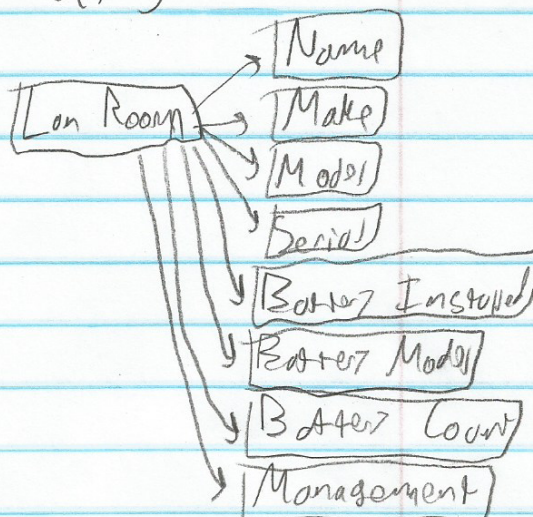 Name
Lan Room
Make
Model
Serial
Battery Installed
Battery Model
Battery Count
Management